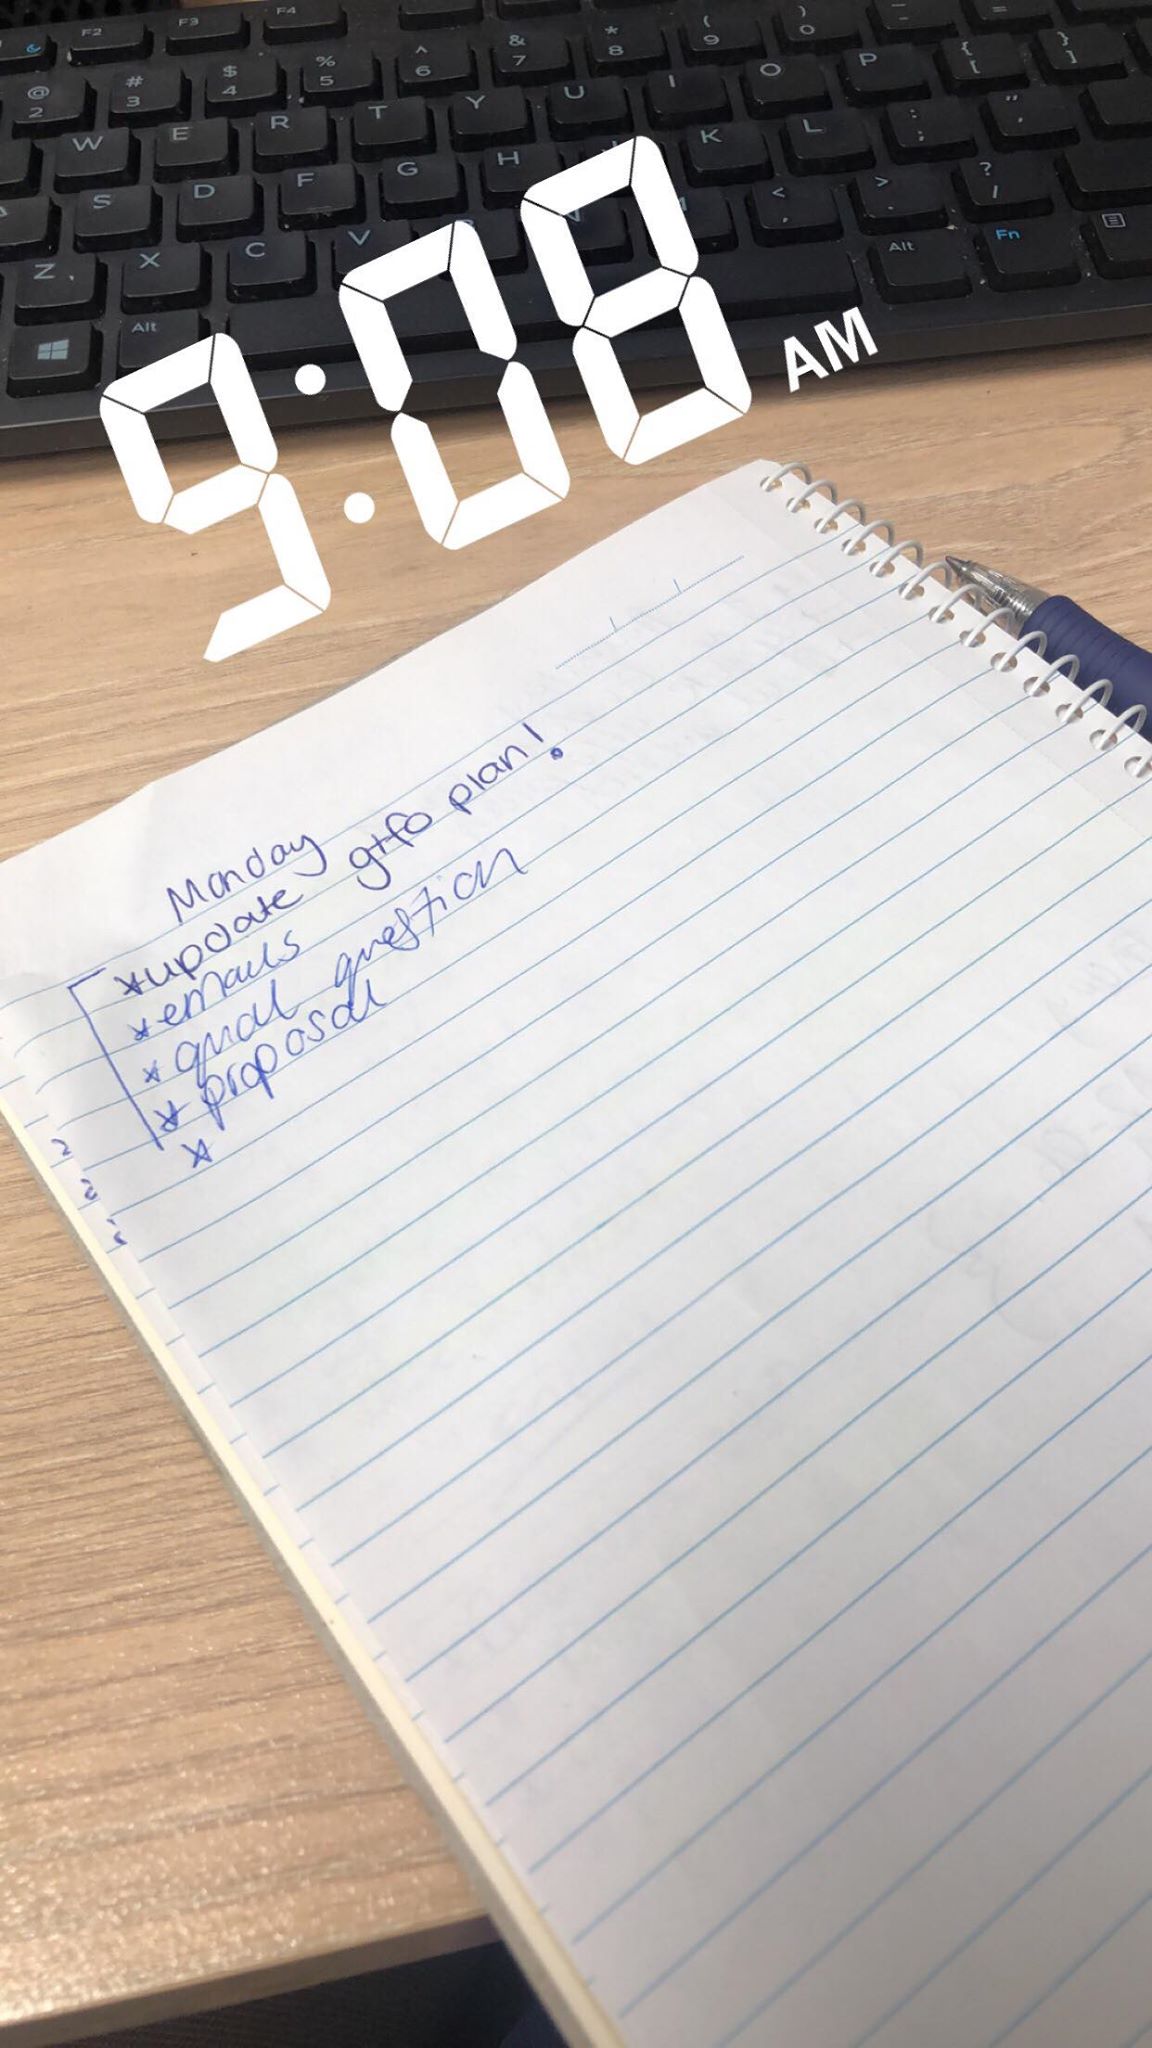 F2 F3 F4
@ # $ % ^ & * ( ) _ =
2 3 4 5 6 7 8 9 0 -
W E R T Y U I O P { }
[ ]
S D F G H K L : "
; '
Z X C V < > ?
, . /
Alt Alt Fn
9:08 AM
Monday
*update gtfo plan!
*emails
*qual question
*proposal
*